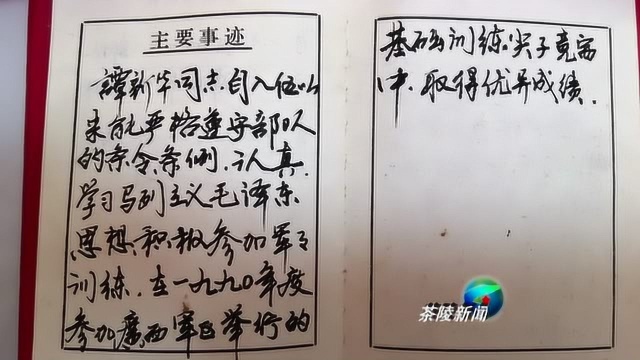 主要事迹
譚新华同志自入伍以
来能严格遵守部队
的条令条例.认真
学习马列主义毛泽东
思想.积极参加军事
训练.在一九九0年度
参加廣西军区举行的
基础训练尖子竞赛
中.取得优异成绩.
茶陵新闻